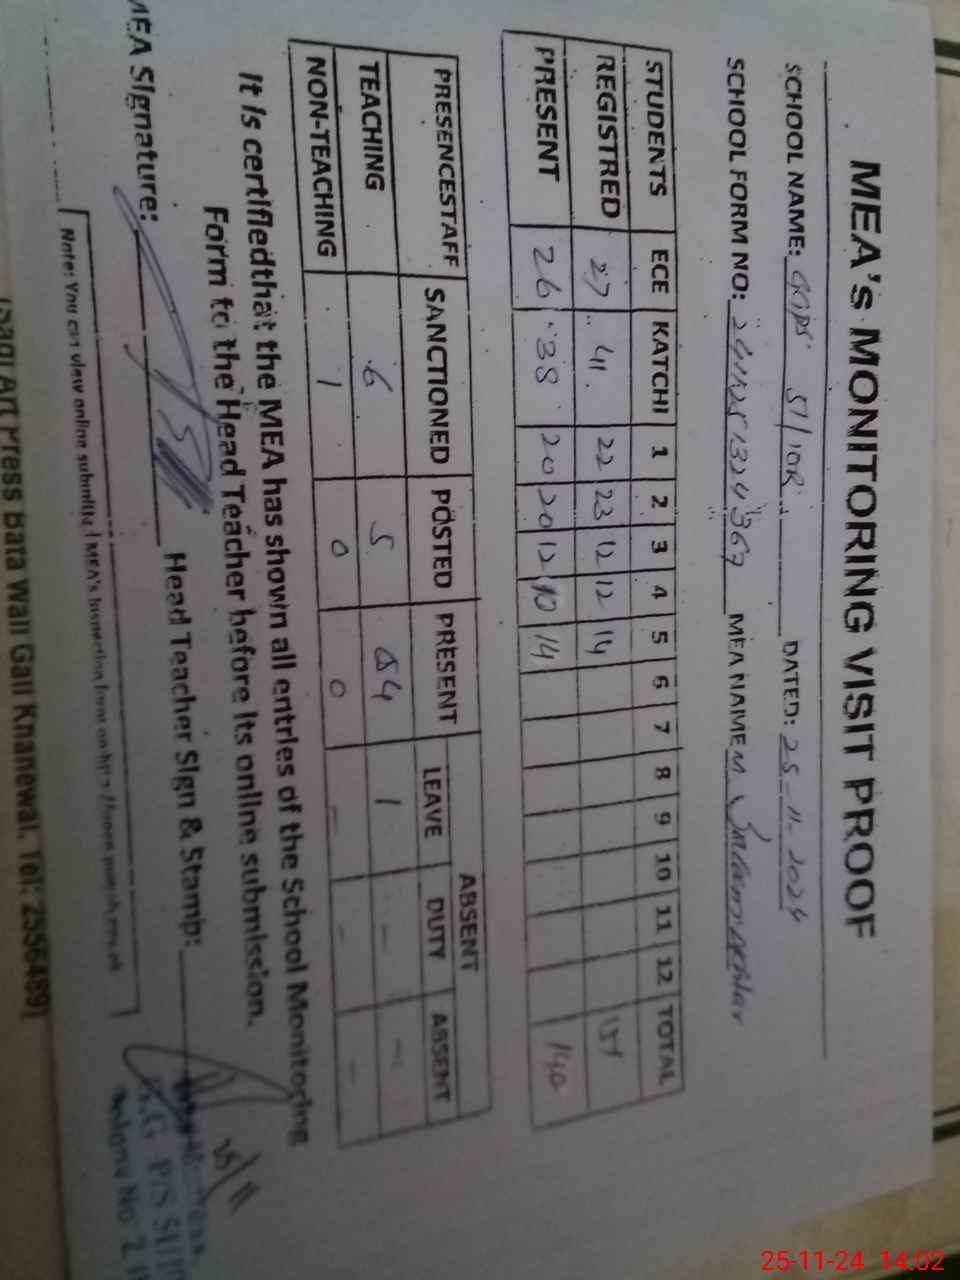 MEA's MONITORING VISIT PROOF
SCHOOL NAME: GGPS 51/10R DATED: 25-11-2024
SCHOOL FORM NO: MEA NAME M.
STUDENTS ECE KATCHI 1 2 3 4 5 6 7 8 9 10 11 12 TOTAL
REGISTRED 27 41 22 23 12 12 14 151
PRESENT 26 38 20 20 12 10 14 140
ABSENT
PRESENCESTAFF SANCTIONED POSTED PRESENT LEAVE DUTY ABSENT
TEACHING 6 5 4 1 - -
NON-TEACHING 1 0 0 - - -
It is certifiedthat the MEA has shown all entries of the School Monitoring
Form to the Head Teacher before its online submission.
MEA Signature: Head Teacher Sign & Stamp:
Note: You can view online submitted MEA's
Art Press Bata Wali Gali Khanewal. Tel: 2556489)
25-11-24 14:02